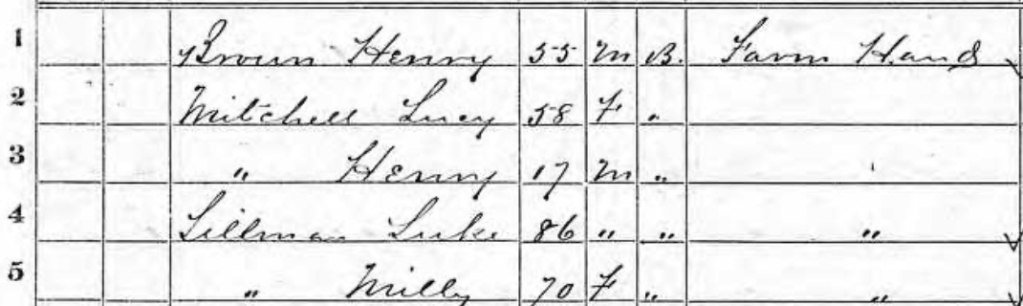 1 Brown Henry 55 M B. Farm Hand
2 Mitchell Lucy 58 F "
3 " Henry 17 M "
4 Sillman Luke 86 " " "
5 " Milly 70 F " "